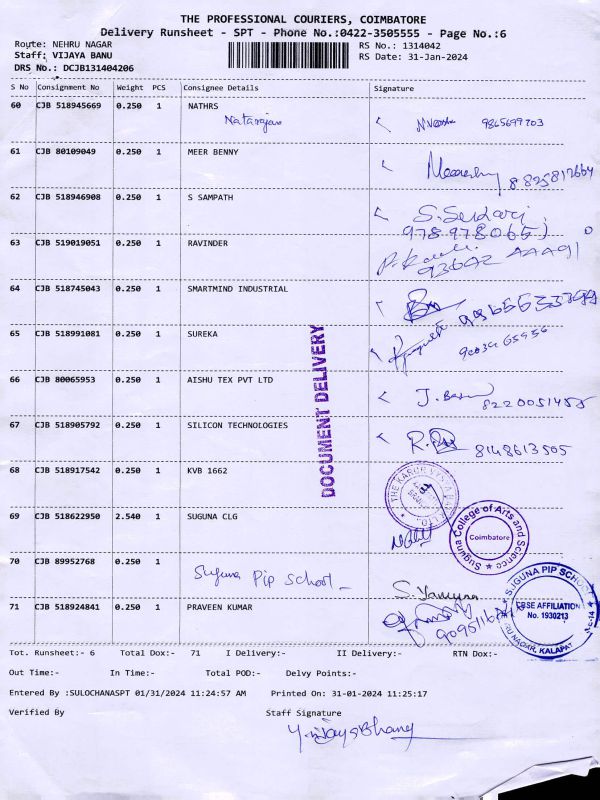 THE PROFESSIONAL COURIERS, COIMBATORE
Delivery Runsheet - SPT - Phone No.:0422-3505555 - Page No.:6
Route: NEHRU NAGAR RS No.: 1314042
Staff: VIJAYA BANU RS Date: 31-Jan-2024
DRS No.: DCJB131404206
S No Consignment No Weight PCS Consignee Details Signature
60 CJB 518945669 0.250 1 NATHRS
Natarajan
61 CJB 80109049 0.250 1 MEER BENNY
62 CJB 518946908 0.250 1 S SAMPATH
63 CJB 519019051 0.250 1 RAVINDER
64 CJB 518745043 0.250 1 SMARTMIND INDUSTRIAL
65 CJB 518991081 0.250 1 SUREKA
66 CJB 80065953 0.250 1 AISHU TEX PVT LTD
8220051455
67 CJB 518905792 0.250 1 SILICON TECHNOLOGIES
8148613505
DOCUMENT DELIVERY
68 CJB 518917542 0.250 1 KVB 1662
THE KARUR VYSYA BANK
69 CJB 518622950 2.540 1 SUGUNA CLG
Suguna College of Arts and Science
Coimbatore
70 CJB 89952768 0.250 1
Suguna Pip School -
S. Yamuna
SUGUNA PIP SCHOOL
CBSE AFFILIATION
No. 1930213
NEHRU NAGAR, KALAPATTI
71 CJB 518924841 0.250 1 PRAVEEN KUMAR
Tot. Runsheet:- 6 Total Dox:- 71 I Delivery:- II Delivery:- RTN Dox:-
Out Time:- In Time:- Total POD:- Delvy Points:-
Entered By :SULOCHANASPT 01/31/2024 11:24:57 AM Printed On: 31-01-2024 11:25:17
Verified By Staff Signature